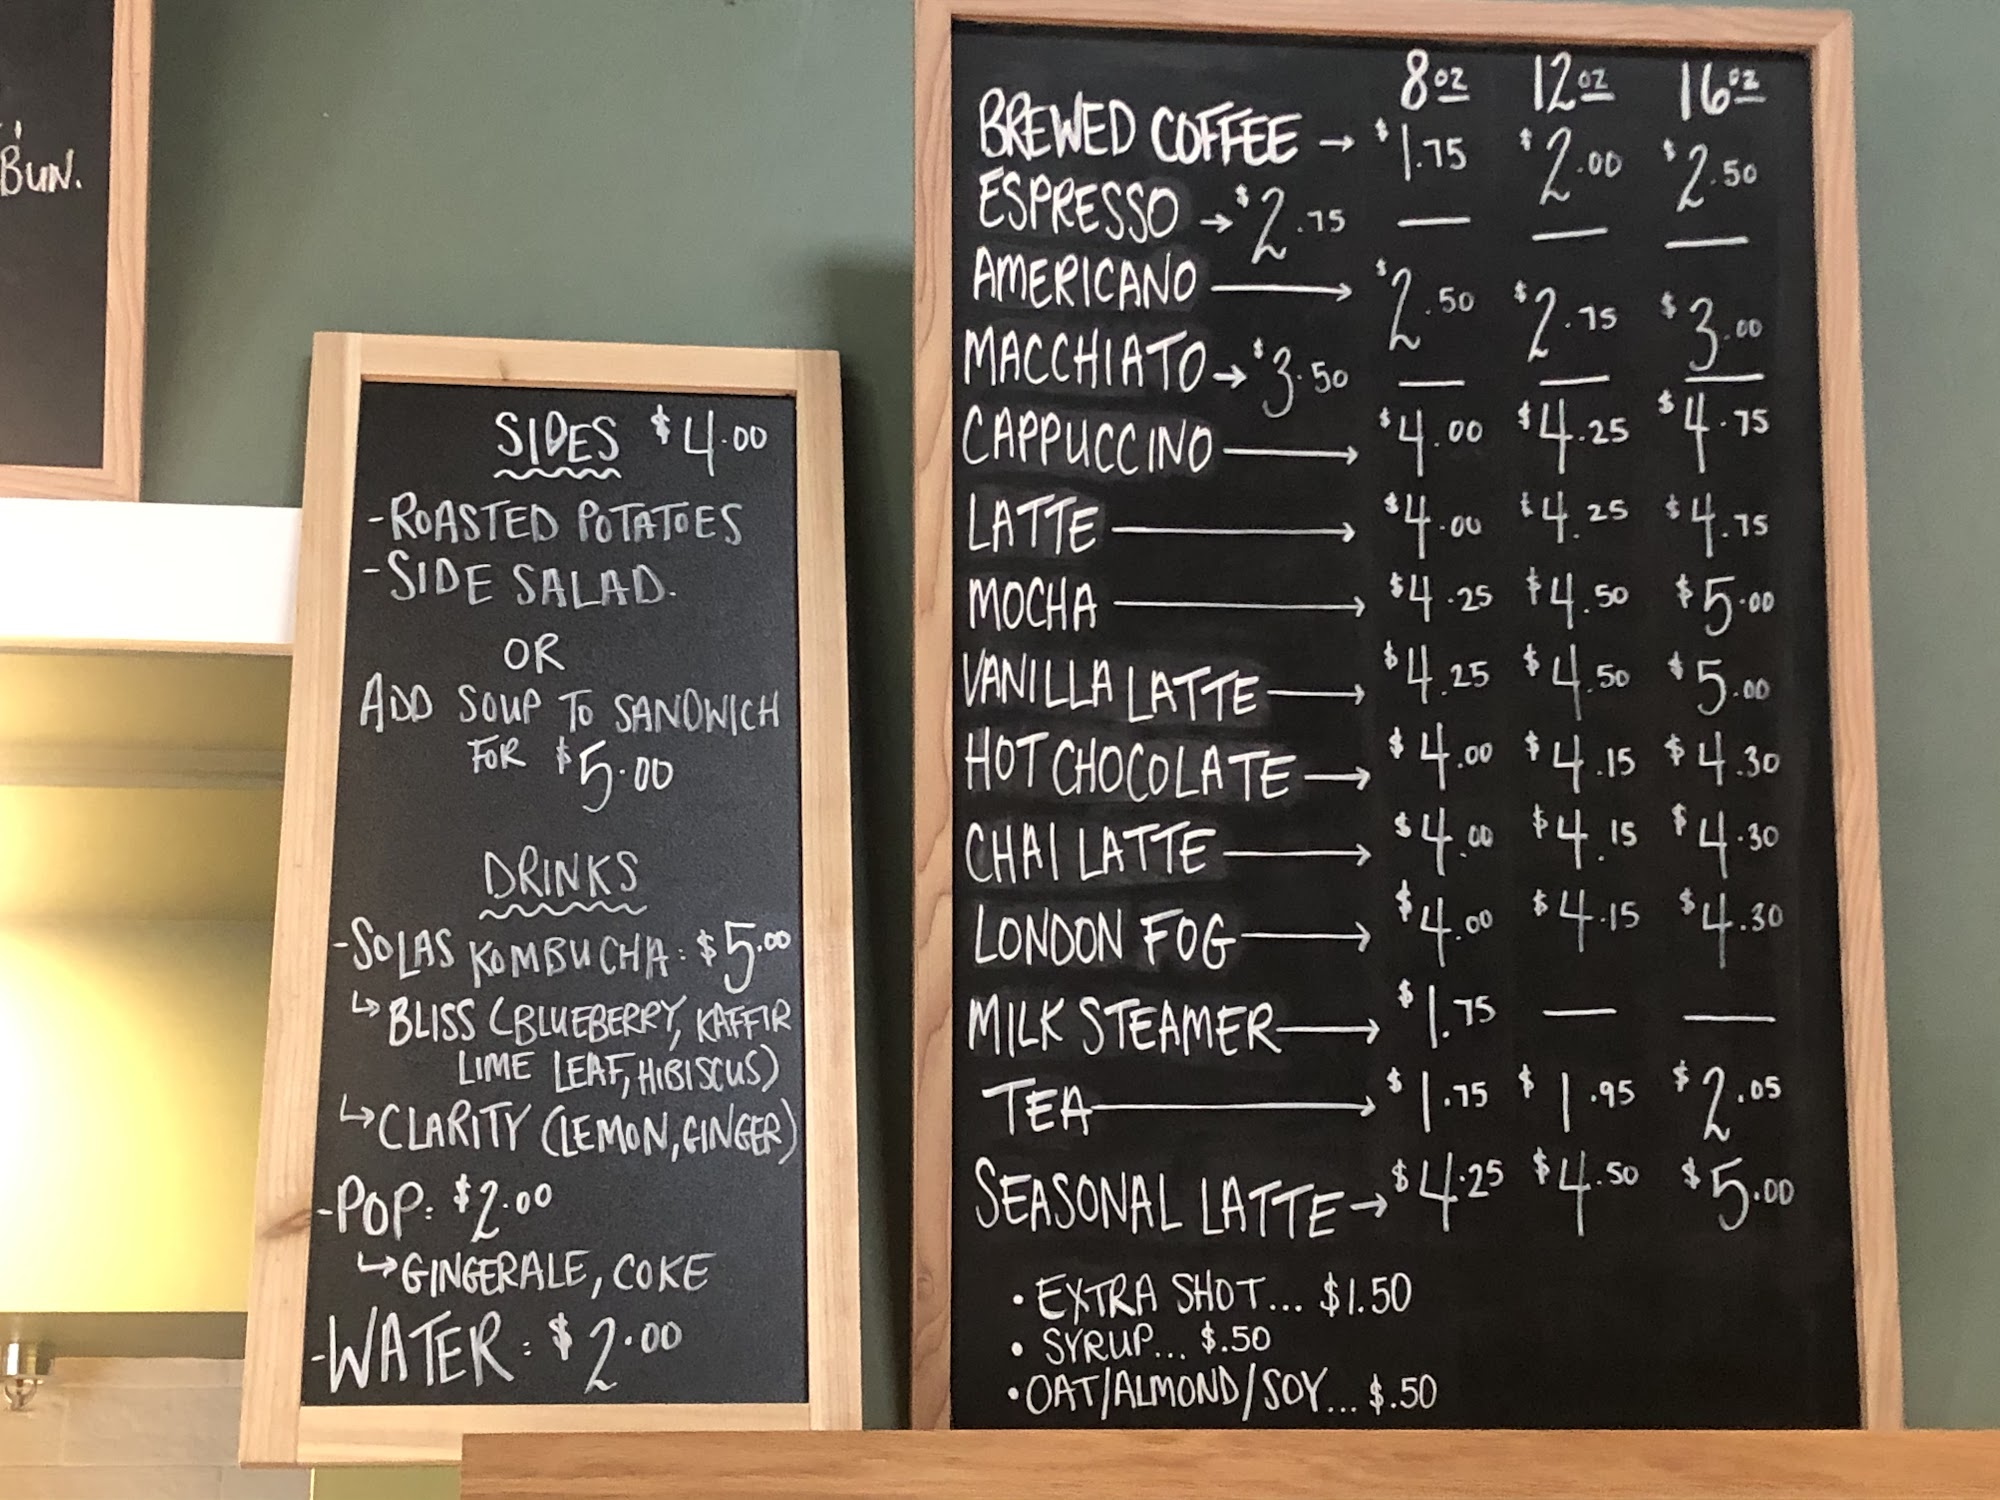 BUN.
SIDES $4.00
-ROASTED POTATOES
-SIDE SALAD.
OR
ADD SOUP TO SANDWICH
FOR $5.00
DRINKS
-SOLAS KOMBUCHA: $5.00
↳BLISS (BLUEBERRY, KAFFIR
LIME LEAF, HIBISCUS)
↳CLARITY (LEMON, GINGER)
-POP: $2.00
↳GINGERALE, COKE
-WATER: $2.00
8oz 12oz 16oz
BREWED COFFEE → $1.75 $2.00 $2.50
ESPRESSO → $2.75 — — —
AMERICANO → $2.50 $2.75 $3.00
MACCHIATO → $3.50 — — —
CAPPUCCINO → $4.00 $4.25 $4.75
LATTE → $4.00 $4.25 $4.75
MOCHA → $4.25 $4.50 $5.00
VANILLA LATTE → $4.25 $4.50 $5.00
HOT CHOCOLATE → $4.00 $4.15 $4.30
CHAI LATTE → $4.00 $4.15 $4.30
LONDON FOG → $4.00 $4.15 $4.30
MILK STEAMER → $1.75 — —
TEA → $1.75 $1.95 $2.05
SEASONAL LATTE → $4.25 $4.50 $5.00
• EXTRA SHOT... $1.50
• SYRUP... $.50
• OAT/ALMOND/SOY... $.50